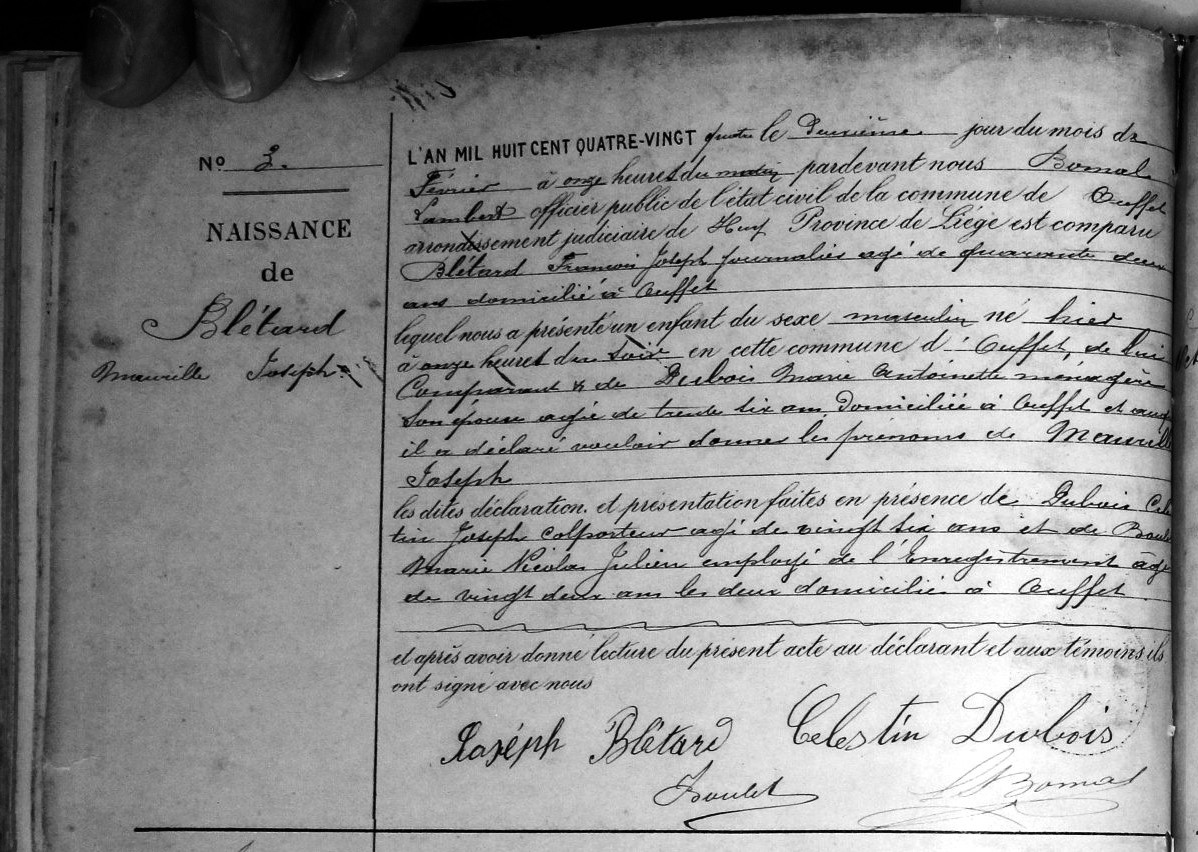 No 3.
NAISSANCE
de
Blétard
Maurille Joseph
L'AN MIL HUIT CENT QUATRE-VINGT quatre le Deuxième jour du mois de
Février à onze heures du matin pardevant nous Bomal
Lambert officier public de l'état civil de la commune de Ouffet
arrondissement judiciaire de Huy Province de Liège est comparu
Blétard François Joseph journalier agé de quarante deux
ans domicilié à Ouffet
lequel nous a présenté un enfant du sexe masculin né hier
à onze heures du soir en cette commune d'Ouffet, de lui
Comparant & de Dubois Marie Antoinette ménagère
son épouse agée de trente six ans, Domiciliée à Ouffet et auquel
il a déclaré vouloir donner les prénoms de Maurille
Joseph
les dites déclaration et présentation faites en présence de Dubois Céles
tin Joseph colporteur agé de vingt six ans et de
Marie Nicolas Julien employé de l'Enregistrement âgé
de vingt deux ans les deux domiciliés à Ouffet
et après avoir donné lecture du présent acte au déclarant et aux témoins ils
ont signé avec nous
Joséph Blétard Celestin Dubois
Boulet LBomal